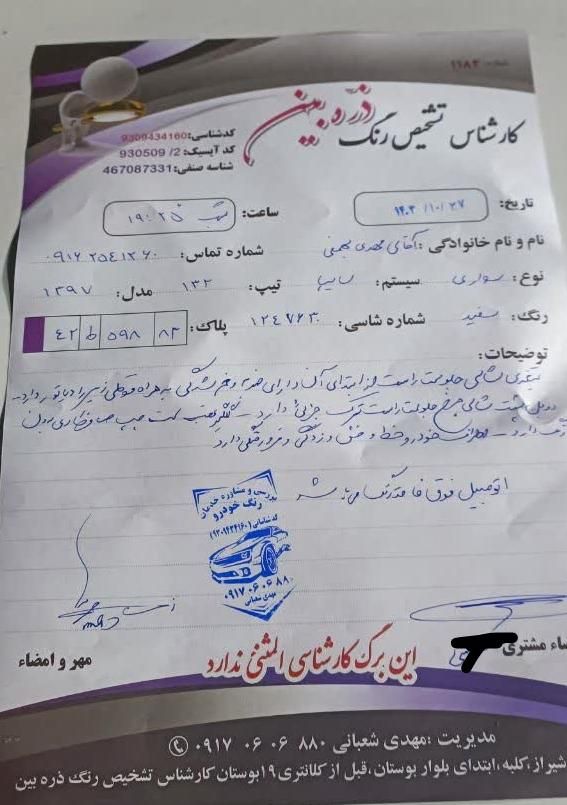 شماره: ۱۱۸۳
کارشناس تشخیص رنگ ذره بین
کدشناسی:9309434160
کد آیسیک: 2/ 930509
شناسه صنفی: 467087331
تاریخ: ۱۴۰۳/۱۰/۲۷
ساعت: ۱۹:۲۵ شب
نام و نام خانوادگی: آقای مهدی
شماره تماس: ۰۹۱۶۲۵۴۱۲۶۰
نوع: سواری سیستم: سایپا تیپ: ۱۳۲ مدل: ۱۳۹۷
رنگ: سفید شماره شاسی: ۱۲۴۷۶۳۰ پلاک: ۸۳ ۵۹۸ ط ۴۲
توضیحات:
جلو سمت راست از ابتدای آن دارای ضربه و به همراه زیر دارد
سمت راست ترک جزئی دارد - گلگیر عقب سمت چپ صافکاری بدون
رنگ دارد - اطراف خودرو خط و خش و زدگی و فرورفتگی دارد
اتومبیل فوق فاقد رنگ می باشد
بررسی و مشاوره خرید
رنگ خودرو
کدشناسایی (۹۳۰۹۴۳۴۱۶۰)
۰۹۱۷ ۰ ۶ ۰ ۶ ۸۸۰
مهدی شعبانی
امضاء مشتری
این برگ کارشناسی المثنی ندارد
مهر و امضاء
مدیریت :مهدی شعبانی ۸۸۰ ۶ ۰ ۶ ۰ ۰۹۱۷
شیراز،کلبه،ابتدای بلوار بوستان،قبل از کلانتری ۱۹ بوستان کارشناس تشخیص رنگ ذره بین